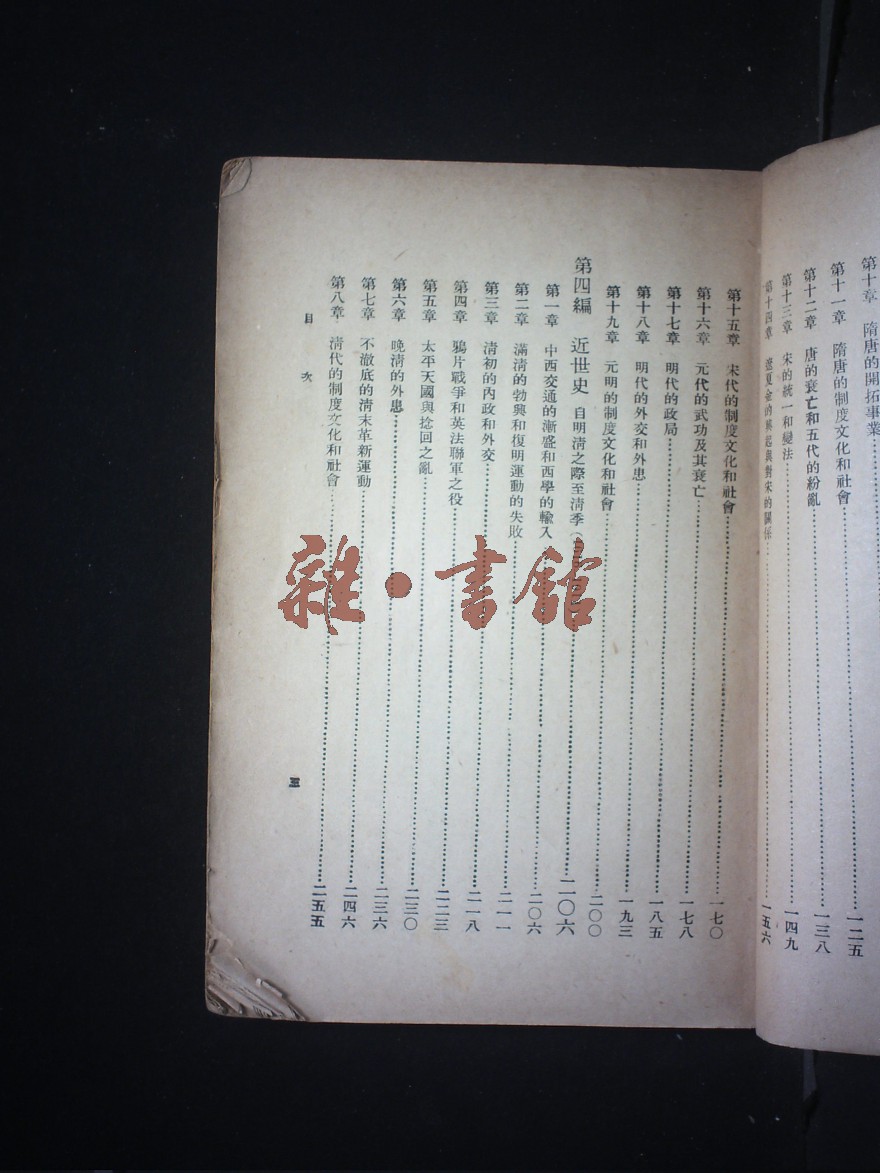 第十章 隋唐的開拓事業
第十一章 隋唐的制度文化和社會 一二五
第十二章 唐的衰亡和五代的紛亂 一三八
第十三章 宋的統一和變法 一四九
第十四章 遼夏金的興起與對宋的關係 一五六
第十五章 宋代的制度文化和社會 一七〇
第十六章 元代的武功及其衰亡 一七八
第十七章 明代的政局 一八五
第十八章 明代的外交和外患 一九三
第十九章 元明的制度文化和社會 二〇〇
第四編 近世史 自明清之際至清季 二〇六
第一章 中西交通的漸盛和西學的輸入 二〇六
第二章 滿清的勃興和復明運動的失敗 二一一
第三章 清初的內政和外交 二一八
第四章 鴉片戰爭和英法聯軍之役 二二三
第五章 太平天國與捻回之亂 二三〇
第六章 晚清的外患 二三六
第七章 不澈底的清末革新運動 二四六
第八章 清代的制度文化和社會 二五五
目次
三
雜·書館